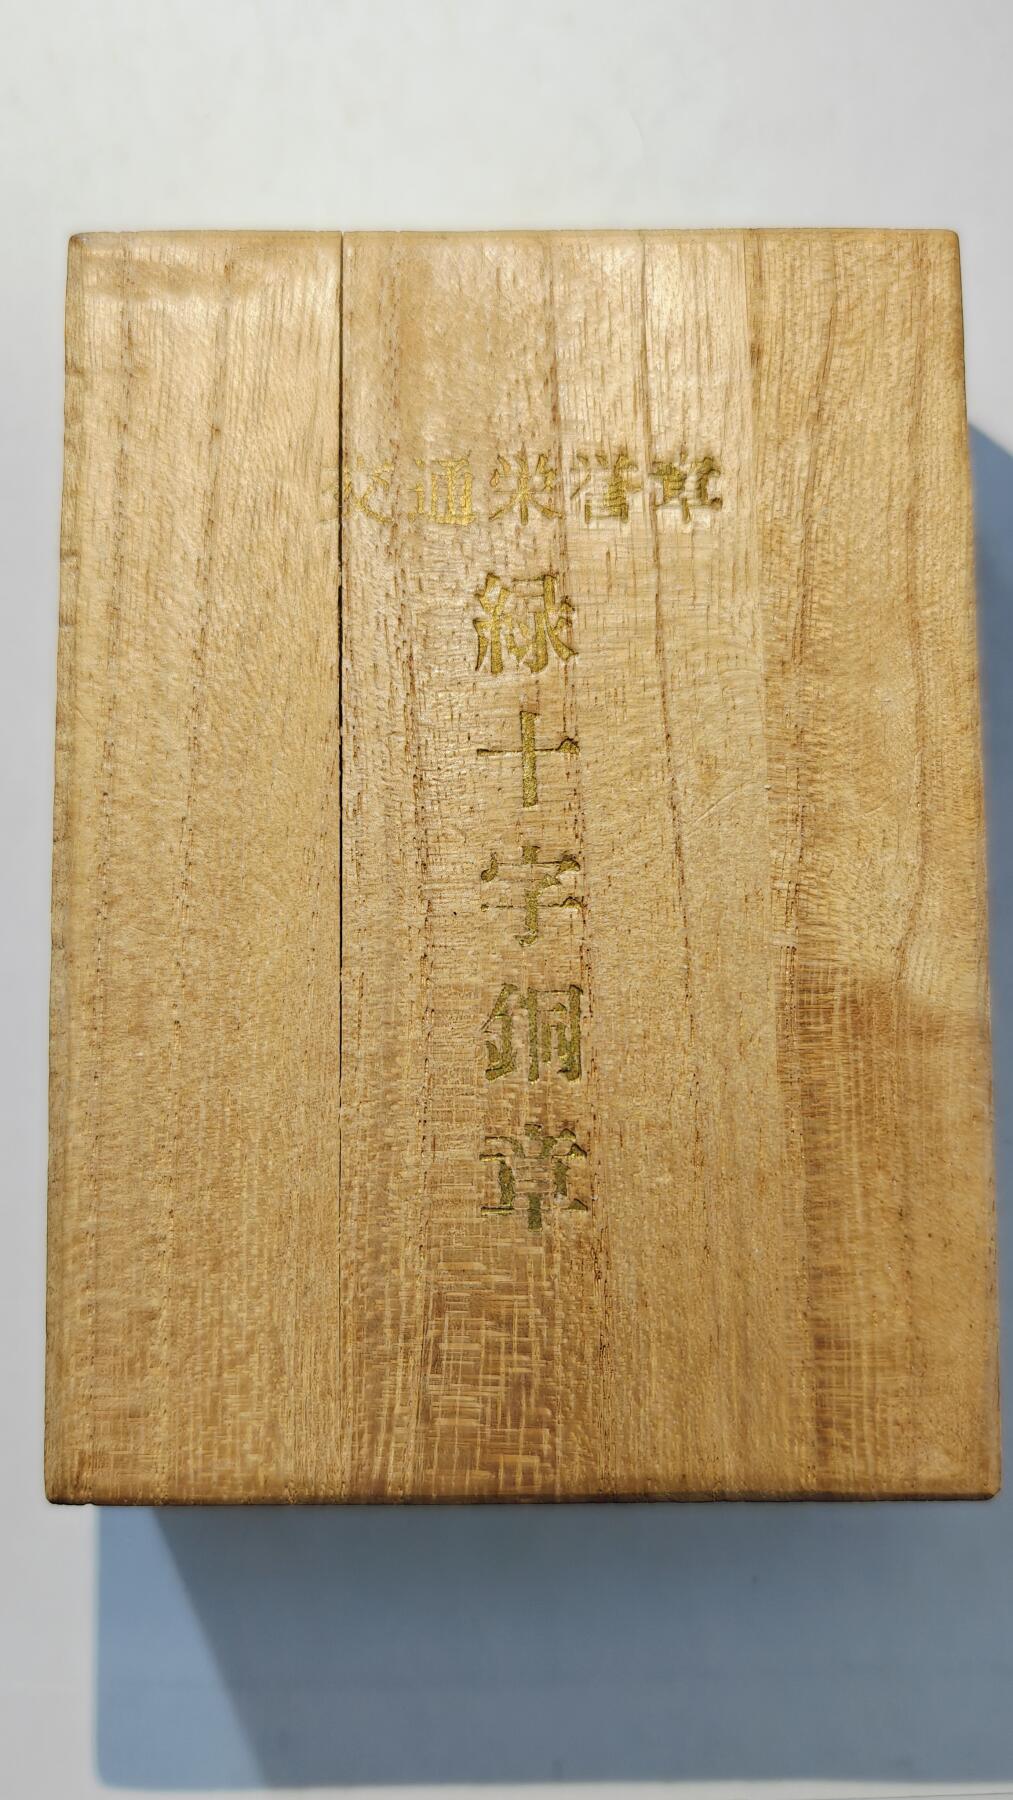 交通栄誉章
緑十字銅章